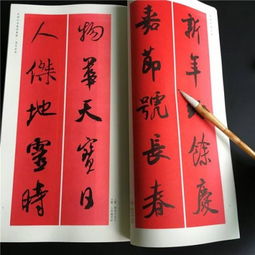 新年餘慶
嘉節號長春
物華天寶日
人傑地靈時